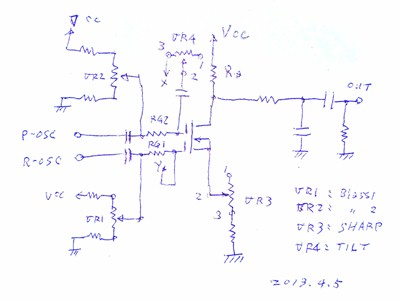 Vcc
VR4
3
1
2
X
Vcc
VR2
Rd
RG2
OUT
P-OSC
R-OSC
RG1
Y
Vcc
VR1
1
2
VR3
3
VR1 = BIASS1
VR2 = 〃 2
VR3 = SHARP
VR4 = TILT
2013.4.5